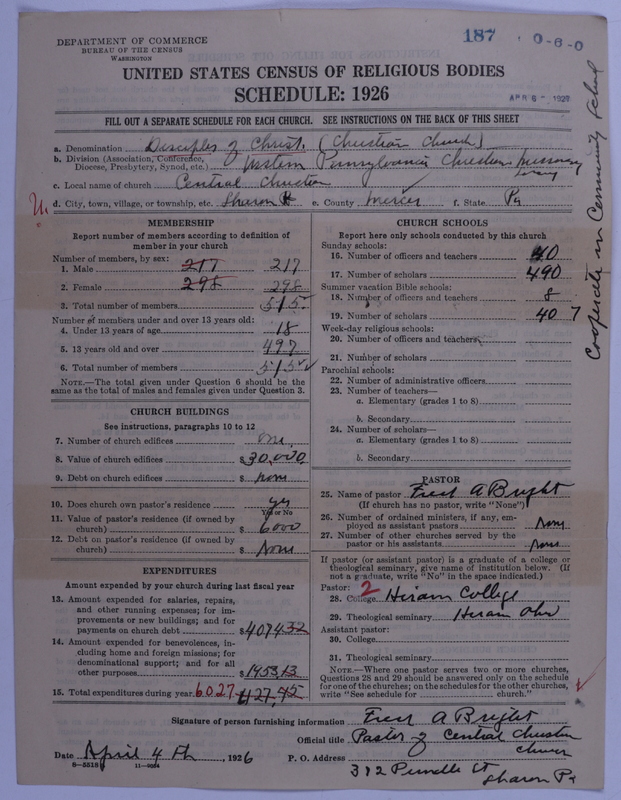 187 0-6-0
DEPARTMENT OF COMMERCE
BUREAU OF THE CENSUS
WASHINGTON
UNITED STATES CENSUS OF RELIGIOUS BODIES
SCHEDULE: 1926
APR 6 - 1927
FILL OUT A SEPARATE SCHEDULE FOR EACH CHURCH. SEE INSTRUCTIONS ON THE BACK OF THIS SHEET
a. Denomination Disciples of Christ. (Christian Church)
b. Division (Association, Conference,
Diocese, Presbytery, Synod, etc.) Western Pennsylvania Christian Missionary
Society
c. Local name of church Central Christian
d. City, town, village, or township, etc. Sharon Pa e. County Mercer f. State Pa
Cooperate in Community School
MEMBERSHIP
Report number of members according to definition of
member in your church
Number of members, by sex:
1. Male 217 217
2. Female 298 298
3. Total number of members 515
Number of members under and over 13 years old:
4. Under 13 years of age 18
5. 13 years old and over 497
6. Total number of members 515
NOTE.—The total given under Question 6 should be the
same as the total of males and females given under Question 3.
CHURCH BUILDINGS
See instructions, paragraphs 10 to 12
7. Number of church edifices one
8. Value of church edifices $30,000
9. Debt on church edifices $ none
10. Does church own pastor's residence yes
Yes or No
11. Value of pastor's residence (if owned by
church) $ 6000
12. Debt on pastor's residence (if owned by
church) $ None
EXPENDITURES
Amount expended by your church during last fiscal year
13. Amount expended for salaries, repairs,
and other running expenses; for im-
provements or new buildings; and for
payments on church debt $4074.32
14. Amount expended for benevolences, in-
cluding home and foreign missions; for
denominational support; and for all
other purposes $1953.13
15. Total expenditures during year 6027
CHURCH SCHOOLS
Report here only schools conducted by this church
Sunday schools:
16. Number of officers and teachers 40
17. Number of scholars 490
Summer vacation Bible schools:
18. Number of officers and teachers 8
19. Number of scholars 40 7
Week-day religious schools:
20. Number of officers and teachers
21. Number of scholars
Parochial schools:
22. Number of administrative officers
23. Number of teachers—
a. Elementary (grades 1 to 8)
b. Secondary
24. Number of scholars—
a. Elementary (grades 1 to 8)
b. Secondary
PASTOR
25. Name of pastor Fred A Bright
(If church has no pastor, write "None")
26. Number of ordained ministers, if any, em-
ployed as assistant pastors None
27. Number of other churches served by the
pastor or his assistants None
If pastor (or assistant pastor) is a graduate of a college or
theological seminary, give name of institution below. (If
not a graduate, write "No" in the space indicated.)
Pastor: 2
28. College Hiram College
29. Theological seminary Hiram Ohio
Assistant pastor:
30. College
31. Theological seminary
NOTE.—Where one pastor serves two or more churches,
Questions 28 and 29 should be answered only on the schedule
for one of the churches; on the schedules for the other churches,
write "See schedule for church."
Signature of person furnishing information Fred A Bright
Official title Pastor of Central Christian
Church
Date April 4th, 1926 P. O. Address
8-5518 11-9024
Sharon Pa